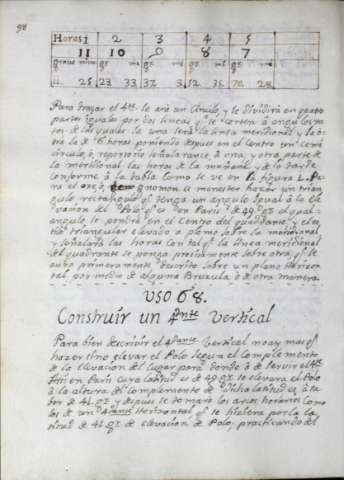 98
Horas 1 2 3 4 5
11 10 9 8 7
11. 25 23 33 37 3 52 35 70 28
Para trazar el 4te. se ara un circulo, y se dividirá en quatro
partes iguales por dos lineas, qe. se corten à angulos rec
tos de los quales la una será la linea meridional, y la o
tra la de 6 horas poniendo depues en el centro un semi
circulo, ò reportorio señalaranse à una, y otra parte de
la meridional las horas de la mañana, y de la tarde
conforme à la tabla como se ve en la figura L. Pa
ra el exe, ò gnomon es menester hazer un trian
gulo rectangulo qe. tenga un angulo igual à la Ele
vacion del Polo, qe. es en Paris de 49. gs. el qual
angulo se pondrá en el centro del quadrante, y el es
tilo triangular elevado a plomo sobre la meridional
y señalará las horas con tal qe. la linea meridional
del quadrante se ponga precisamente sobre otra, qe. se
aurá primeramente descrito sobre un plano Horizon
tal por medio de alguna Bruxula, ò de otra manera.
USO 68.
Construir un 4dante Vertical
Para bien descrivir el 4dante Vertical no ay mas qe.
hazer sino elevar el Polo segun el complemento
de la elevacion del lugar para donde à de servir el 4te.
Assi en Paris cuya latitud es de 49. gs. se elevara el Polo
à la altura del complemento de dicha latitud es à sa
ber de 41. gs. y depues se tomarà los arcos horarios como
los de un 4dante Horizontal, qe. se hiziera por la la
titud de 41. gs. de elevacion de Polo, practicando del